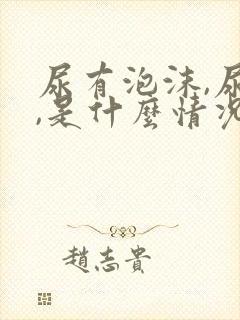 尿有泡沫,尿
,是什麼情況
趙志貴